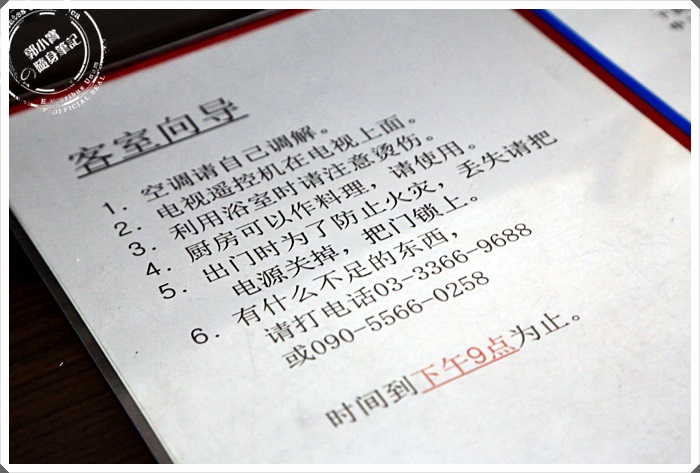 郭小寶
の隨身筆記
OFFICIAL SEAL
客室向导
1. 空调请自己调解。
2. 电视遥控机在电视上面。
3. 利用浴室时请注意烫伤。
4. 厨房可以作料理，请使用。
5. 出门时为了防止火灾，丢失请把
电源关掉，把门锁上。
6. 有什么不足的东西，
请打电话03-3366-9688
或090-5566-0258
时间到下午9点为止。